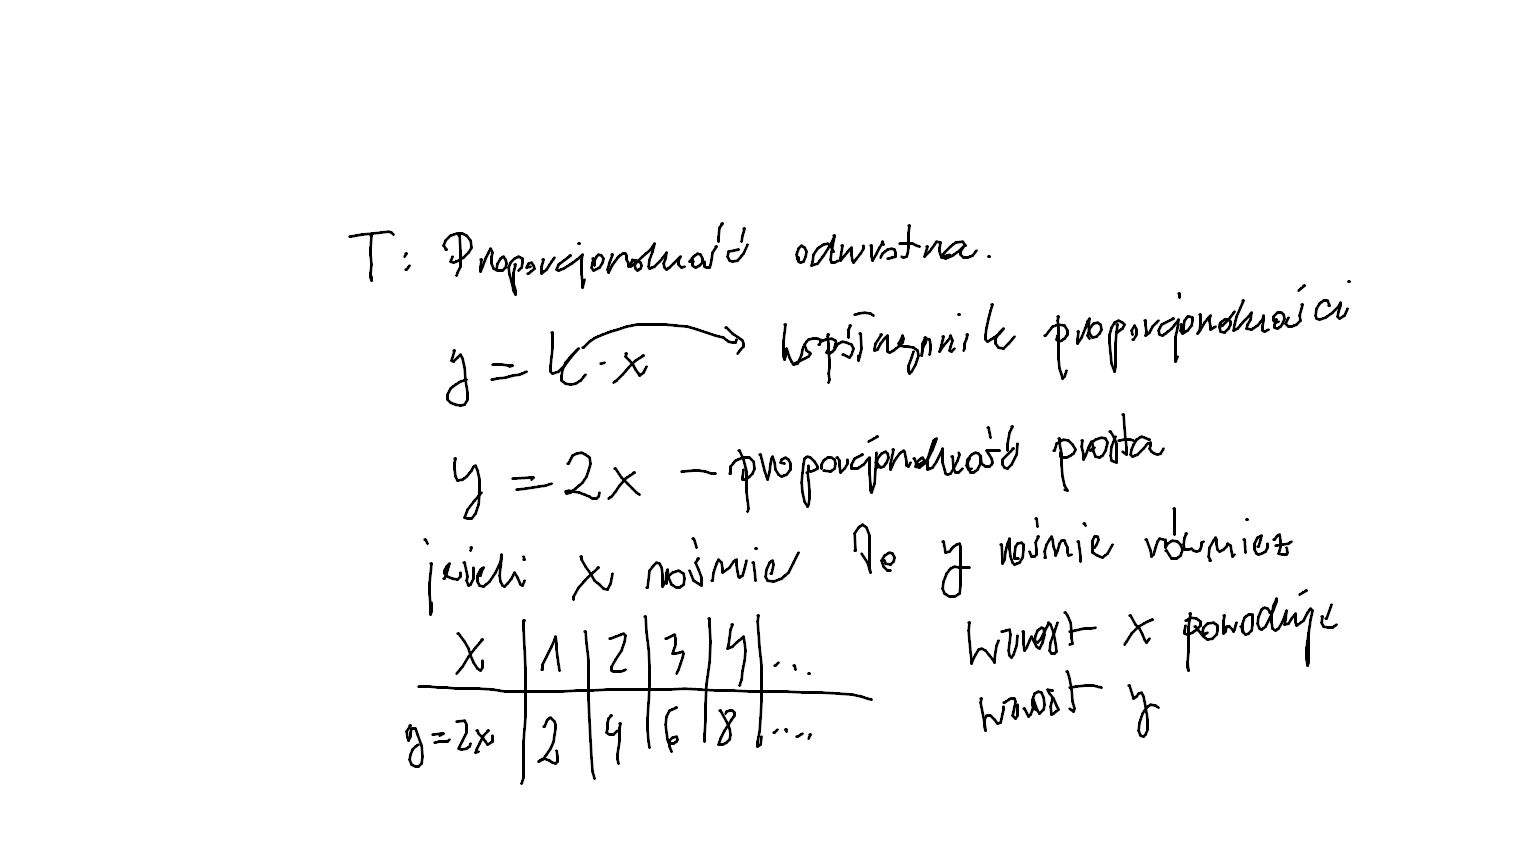 T: Proporcjonalność odwrotna.
y = k · x → współczynnik proporcjonalności
y = 2x – proporcjonalność prosta
jeżeli x rośnie to y rośnie również
x | 1 | 2 | 3 | 4 | ...
y=2x | 2 | 4 | 6 | 8 | ....
wzrost x powoduje
wzrost y